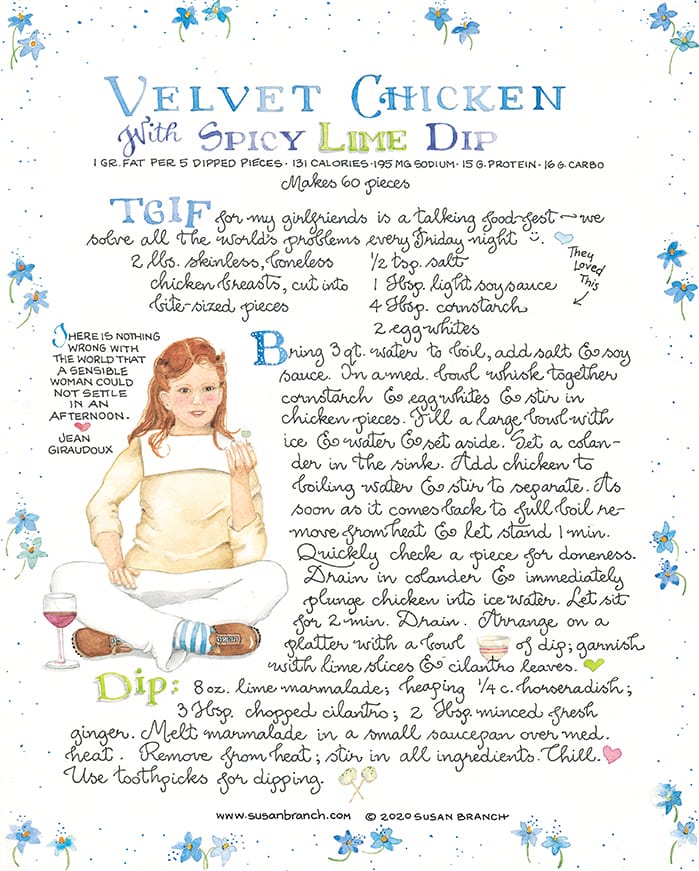 VELVET CHICKEN
With SPICY LIME DIP
1 GR. FAT PER 5 DIPPED PIECES • 131 CALORIES • 195 MG SODIUM • 15 G. PROTEIN • 16 G. CARBO
Makes 60 pieces
TGIF for my girlfriends is a talking food-fest — we
solve all the world's problems every Friday night
They
Loved
This
2 lbs. skinless, boneless
chicken breasts, cut into
bite-sized pieces
1/2 tsp. salt
1 Tbsp. light soy sauce
4 Tbsp. cornstarch
2 egg whites
THERE IS NOTHING
WRONG WITH
THE WORLD THAT
A SENSIBLE
WOMAN COULD
NOT SETTLE
IN AN
AFTERNOON.
JEAN
GIRAUDOUX
Bring 3 qt. water to boil, add salt & soy
sauce. In a med. bowl whisk together
cornstarch & egg whites & stir in
chicken pieces. Fill a large bowl with
ice & water & set aside. Set a colan-
der in the sink. Add chicken to
boiling water & stir to separate. As
soon as it comes back to full boil re-
move from heat & let stand 1 min.
Quickly check a piece for doneness.
Drain in colander & immediately
plunge chicken into ice water. Let sit
for 2 min. Drain. Arrange on a
platter with a bowl of dip; garnish
with lime slices & cilantro leaves.
Dip: 8 oz. lime marmalade; heaping 1/4 c. horseradish;
3 Tbsp. chopped cilantro; 2 Tbsp. minced fresh
ginger. Melt marmalade in a small saucepan over med.
heat. Remove from heat; stir in all ingredients. Chill.
Use toothpicks for dipping.
www.susanbranch.com © 2020 SUSAN BRANCH